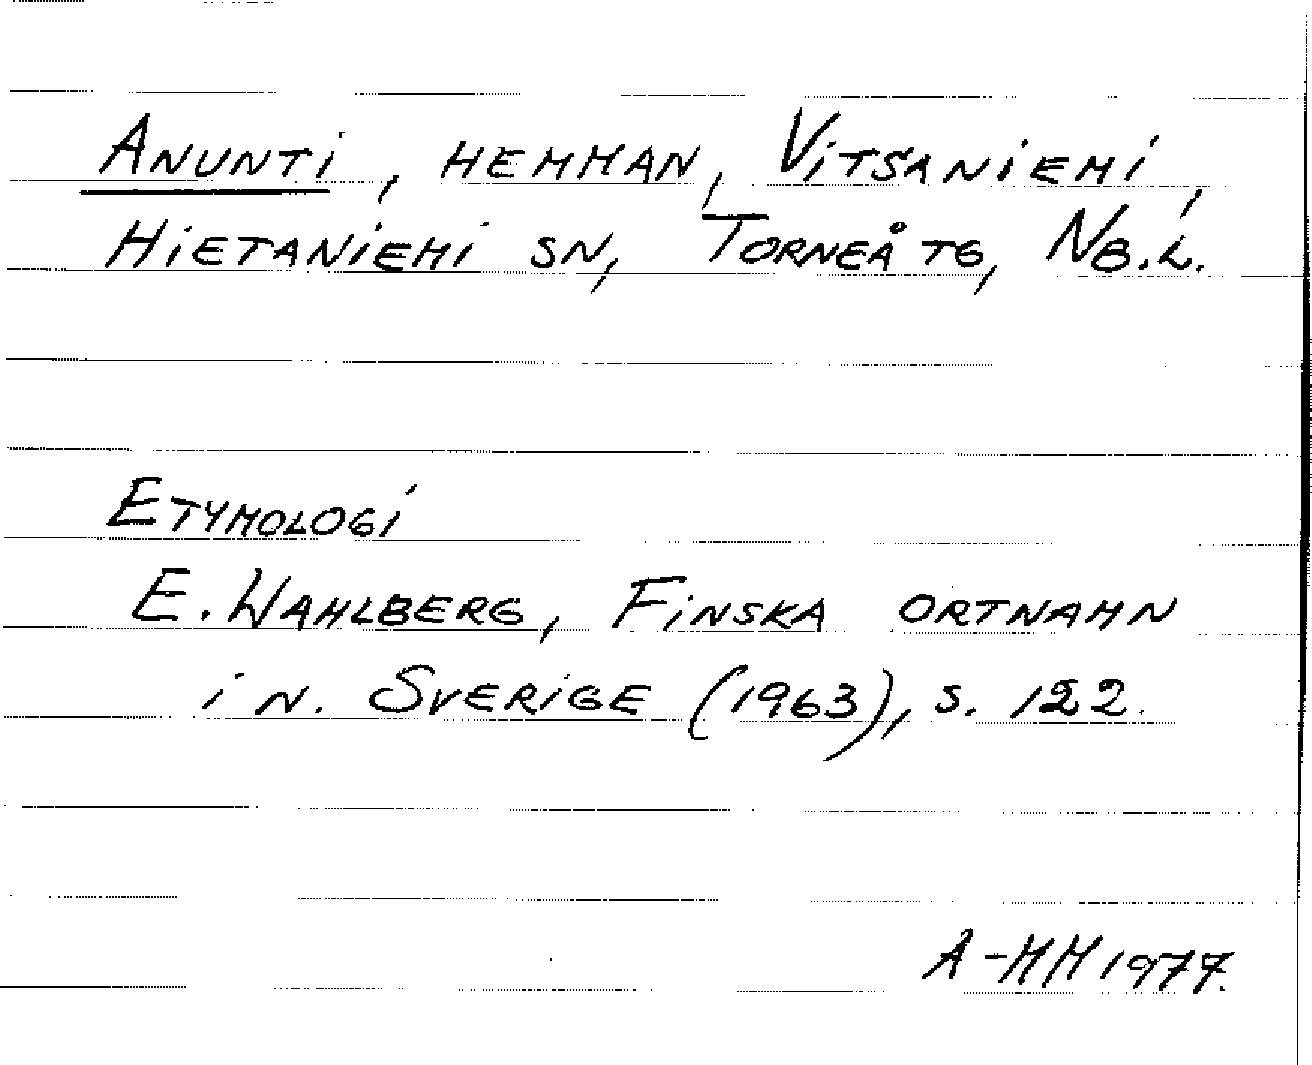 Anunti, hemman, Vitsaniemi,
Hietaniemi sn, Torneå tg, Nb.l.
Etymologi
E. Wahlberg, Finska ortnamn
i n. Sverige (1963), s. 122.
A-MM 1977.